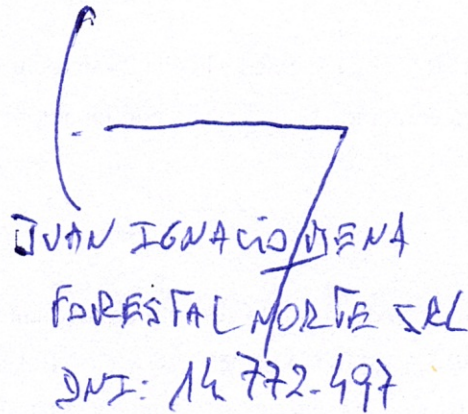 JUAN IGNACIO MENA
FORESTAL NORTE SRL
DNI: 14.772.497